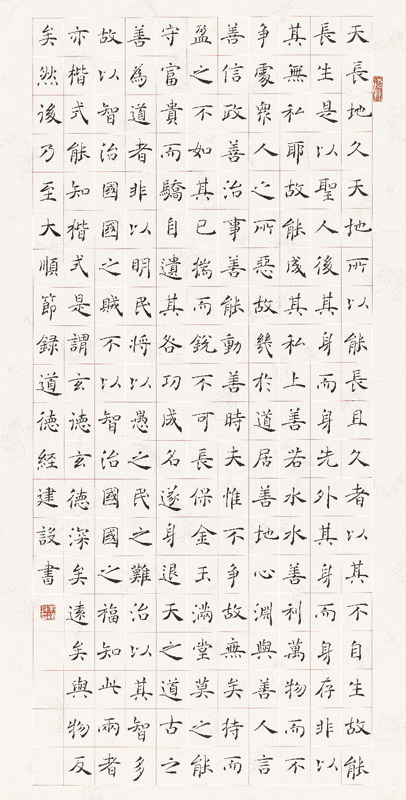 天長地久天地所以能長且久者以其不自生故能
長生是以聖人後其身而身先外其身而身存非以
其無私耶故能成其私上善若水水善利萬物而不
争處衆人之所惡故幾於道居善地心淵與善人言
善信政善治事善能動善時夫惟不争故無矣持而
盈之不如其已揣而銳不可長保金玉滿堂莫之能
守富貴而驕自遺其咎功成名遂身退天之道古之
善為道者非以明民將以愚之民之難治以其智多
故以智治國國之賊不以智治國國之福知此兩者
亦楷式能知楷式是謂玄德玄德深矣遠矣與物反
矣然後乃至大順節録道德經建設書